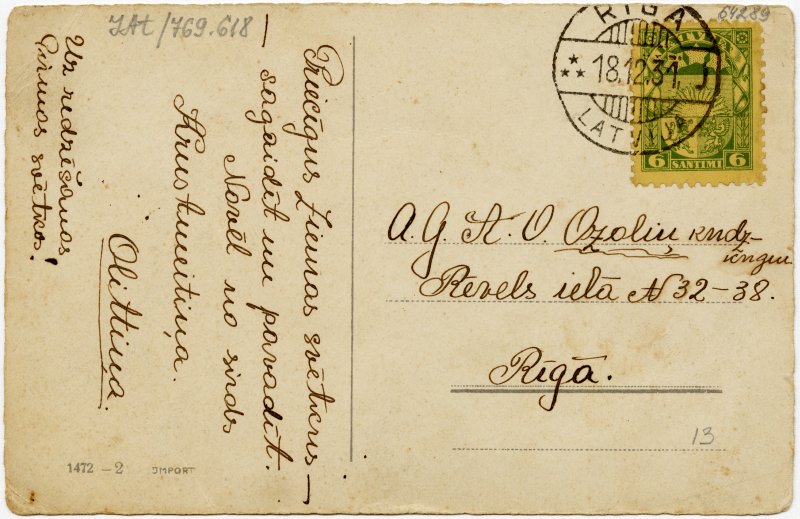 JAt/769.618
64289
RĪGA
18.12.31 J
LATVIJA
LATVIJA
6 SANTIMI 6
Priecīgus Ziemas svētkus
sagaidīt un pavadīt.
Novēl no sirds
Krustmeitiņa.
Olittiņa.
Uz redzēšanos
Pirmos svētkos!
A. G. A. O. Ozoliņ kndz-
iengu
Revels ielā N 32-38.
Rīgā.
13
1472 - 2 IMPORT